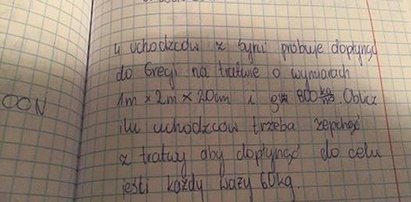 4 uchodźców z Syrii próbuje dopłynąć
do Grecji na tratwie o wymiarach
1m × 2m × 20cm i 800 kg/m³. Oblicz
ilu uchodźców trzeba zepchnąć
z tratwy aby dopłynąć do celu
jeśli każdy waży 60kg.